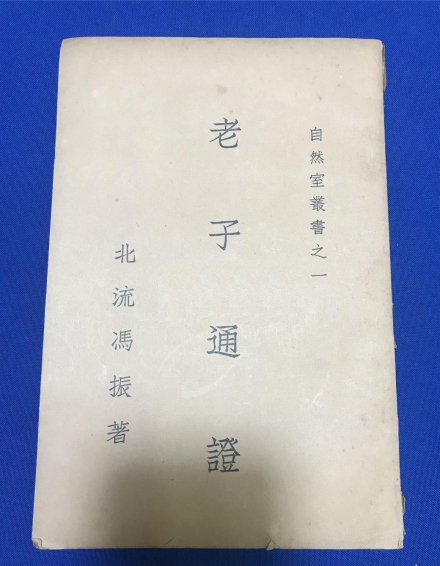 自然室叢書之一
老子通證
北流馮振著